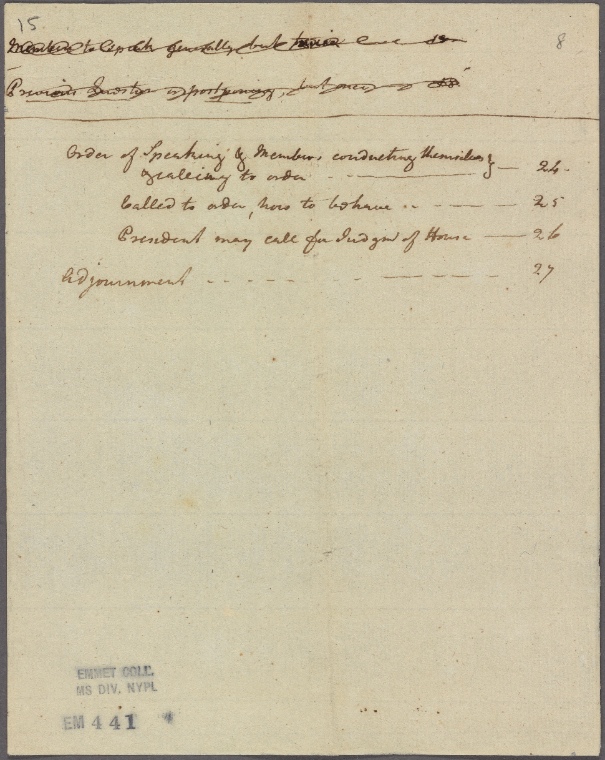 15.
8
Members to speak generally but twice
Previous Question is postponing, but once
Order of Speaking & Members conducting themselves } — 24.
& calling to order
Called to order, how to behave — 25
President may call for Judgmt of House — 26
Adjournment — 27
EMMET COLL.
MS DIV. NYPL
EM 441